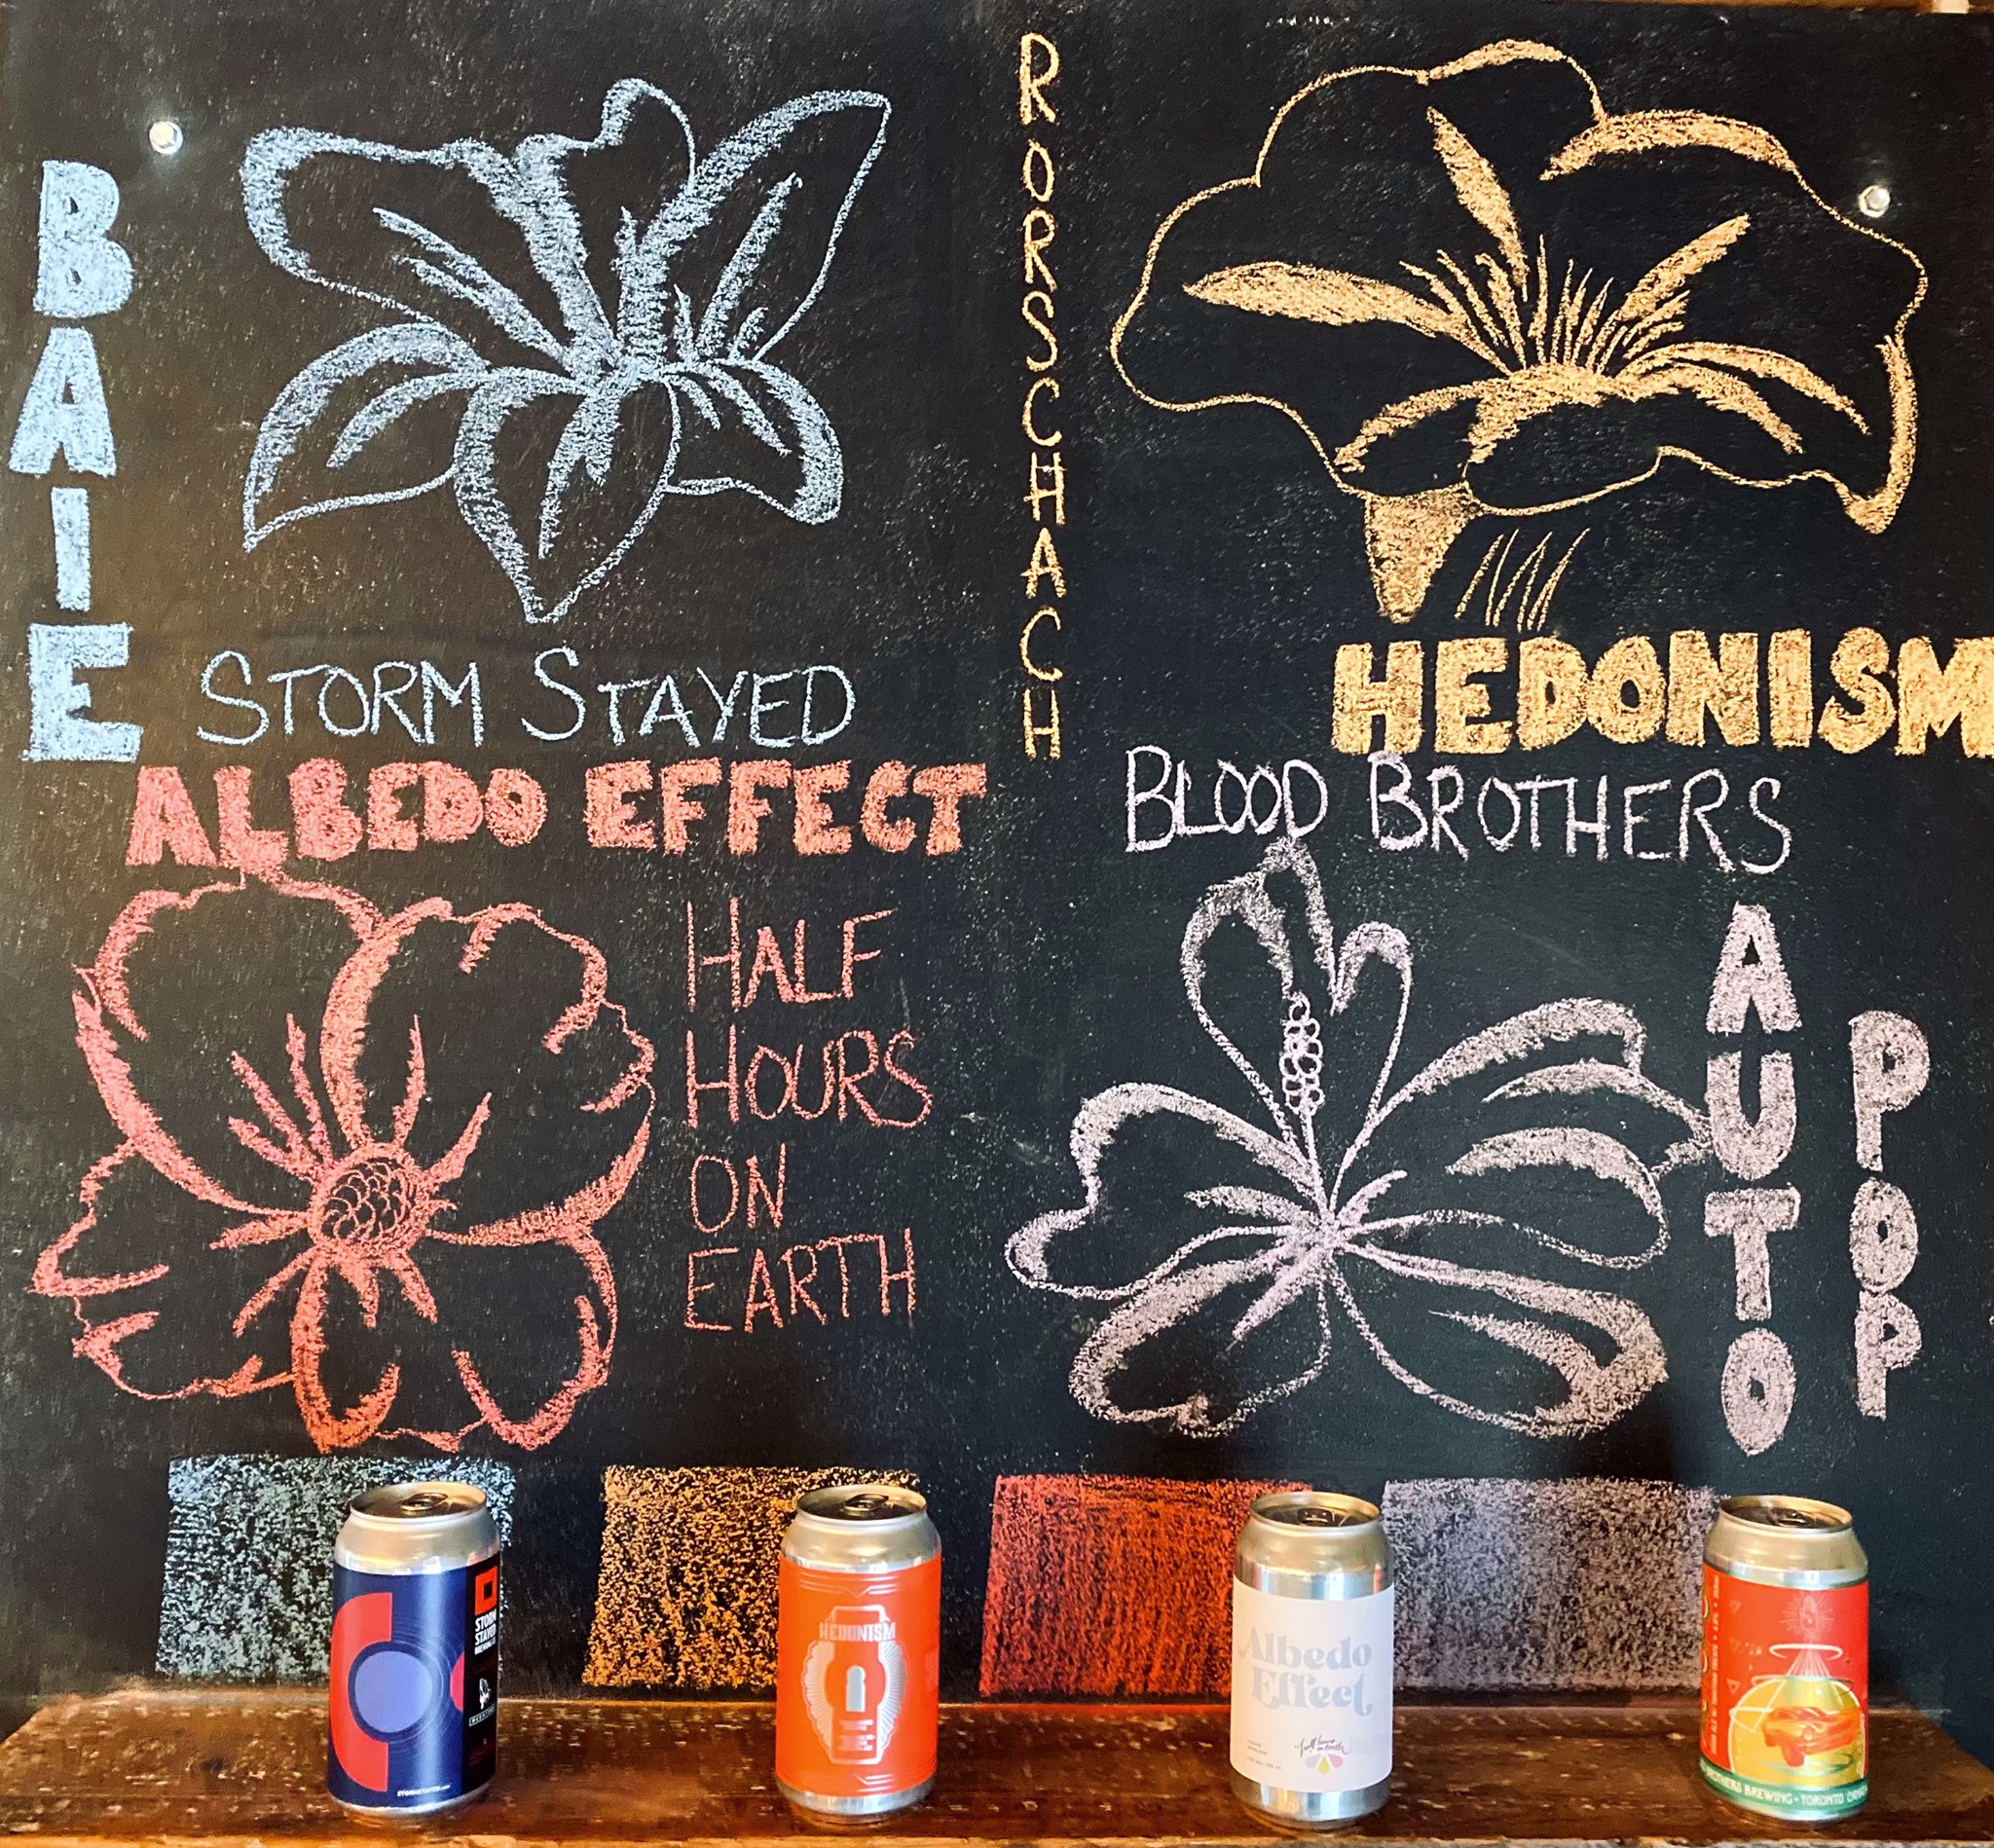 BAIE
STORM STAYED
RORSCHACH
HEDONISM
ALBEDO EFFECT
HALF
HOURS
ON
EARTH
BLOOD BROTHERS
AUTO
POP
STORM
STAYED
BREWING CO
STORMSTAYED.COM
HEDONISM
Albedo
Effect
half hours
on earth
BROTHERS BREWING • TORONTO